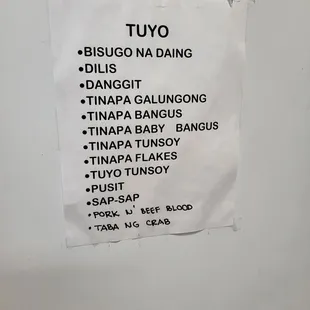 TUYO
•BISUGO NA DAING
•DILIS
•DANGGIT
•TINAPA GALUNGONG
•TINAPA BANGUS
•TINAPA BABY BANGUS
•TINAPA TUNSOY
•TINAPA FLAKES
•TUYO TUNSOY
•PUSIT
•SAP-SAP
•PORK N' BEEF BLOOD
•TABA NG CRAB